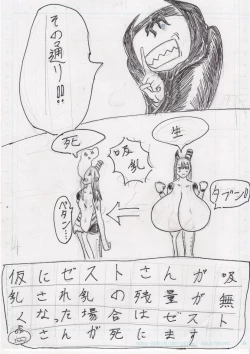 その通り!!
生
吸乳
死
タプン♪
ペタン…
仮にゼストさんが吸
乳され乳の残量が無
くなった場合はゼスト
さんが死にます